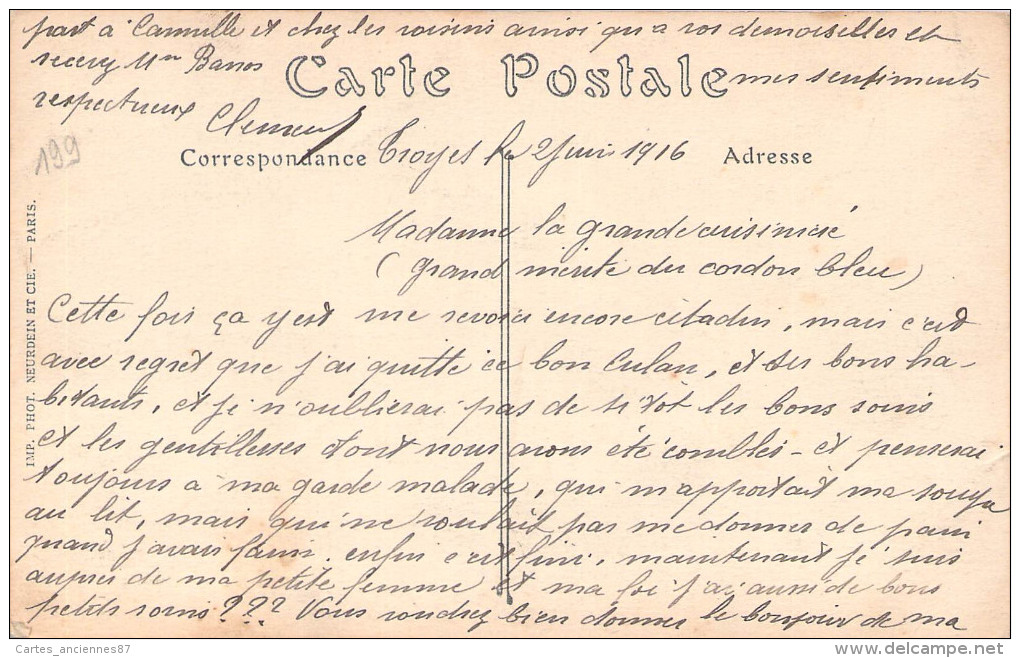 part à Cammille et chez les voisins ainsi qu'a vos demoiselles et
recevez Mme Banos mes sentiments
respectueux Clement
Carte Postale
199
Correspondance
Adresse
Troyes le 2 Juin 1916
Madame la grande cuisinière
(grand mérite du cordon bleu)
Cette fois ça y est me revoici encore citadin, mais c'est
avec regret que j'ai quitté ce bon Culan, et ses bons ha-
bitants, et je n'oublierai pas de sitôt les bons soins
et les gentillesses dont nous avons été comblés - et penserai
toujours à ma garde malade, qui m'apportait ma soupe
au lit, mais qui ne voulait pas me donner de pain
quand j'avais faim. enfin c'est fini, maintenant je suis
auprès de ma petite femme et ma foi j'ai aussi de bons
petits soins ??? Vous voudrez bien donner le bonjour de ma
IMP. PHOT. NEURDEIN ET CIE. — PARIS.
Cartes_anciennes87